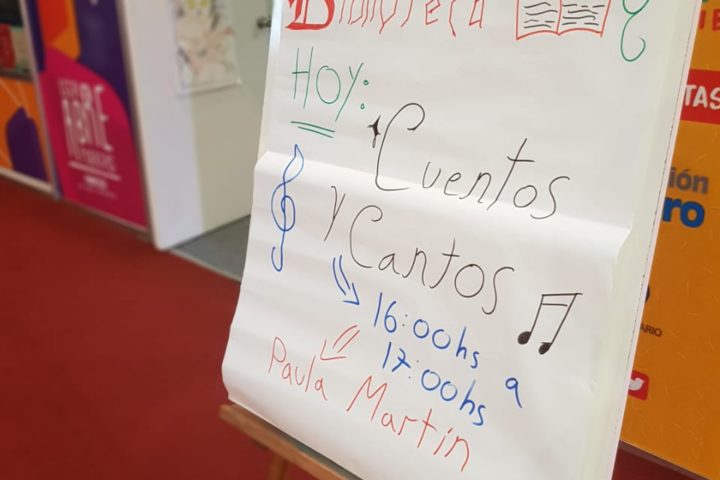 Biblioteca
Hoy:
Cuentos
y Cantos
16:00hs a
17:00hs
Paula Martín
ABRE
TAS
ión
ro
ARIO